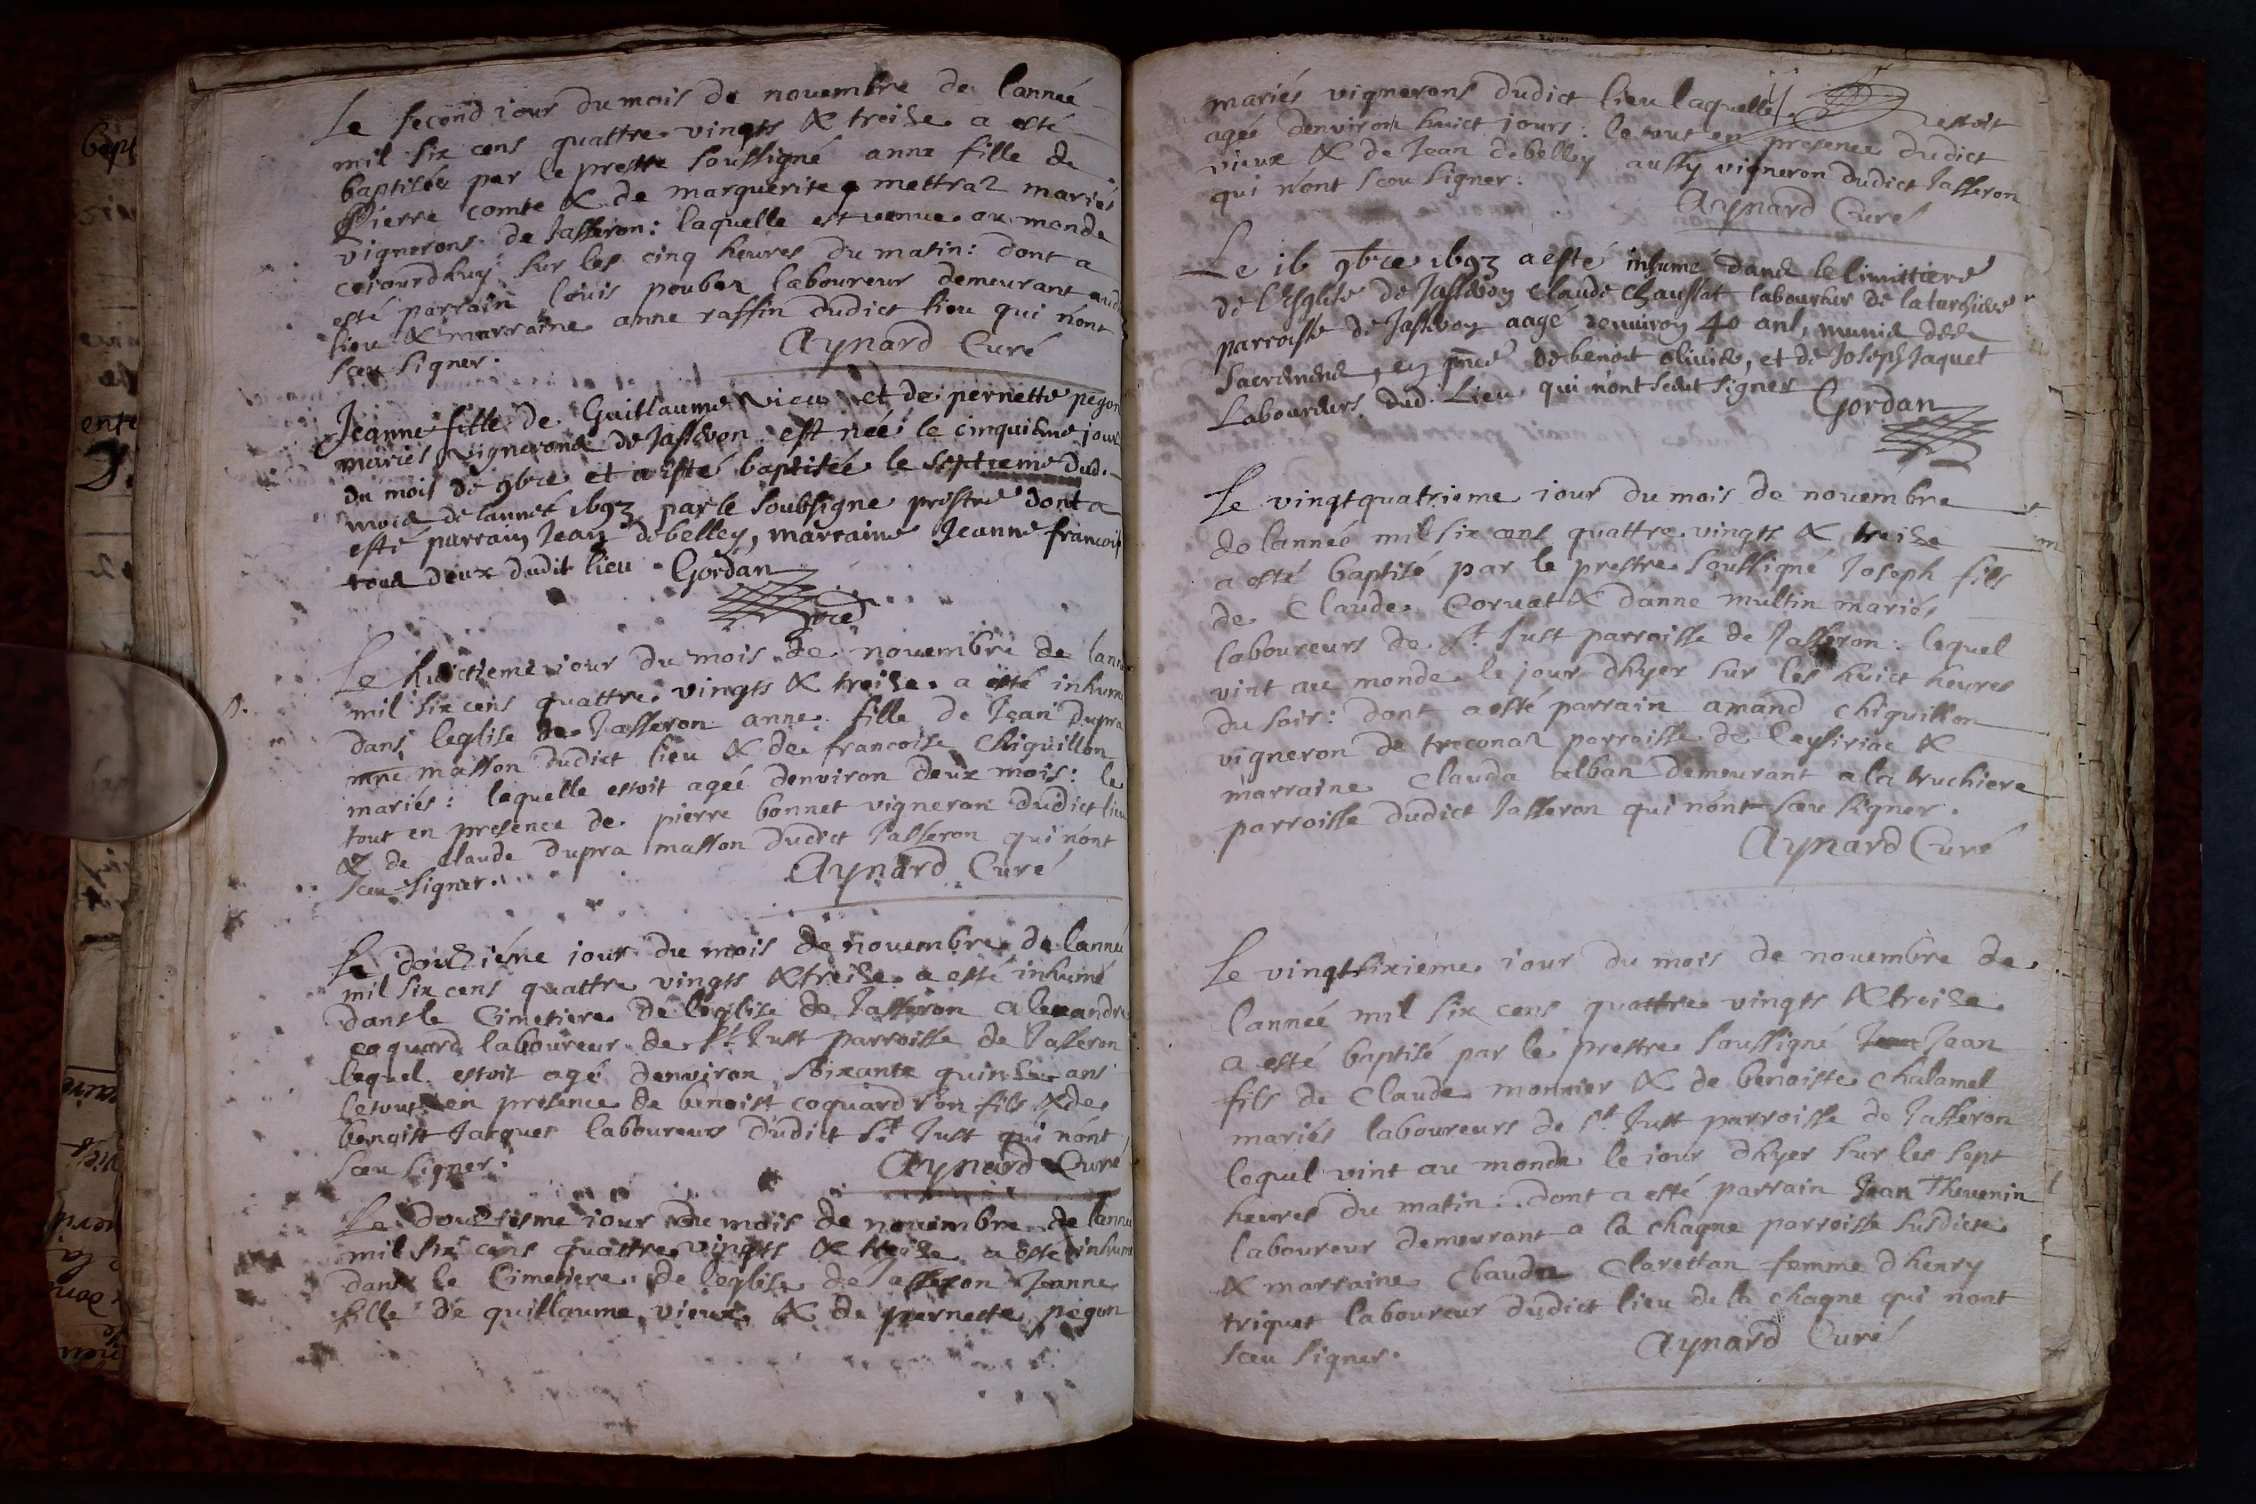 Le second iour du mois de novembre de lanneé
mil six cens quattre vingts & treize a esté
baptiseé par le prestre soussigné anne fille de
Pierre comte & de marguerite mettraz mariés
vignerons de Jasseron : laquelle est venue au monde
ceiourdhuy sur les cinq heures du matin : dont a
esté parrain louis laboureur demeurant
lieu & marraine anne raffin dudict lieu qui nont
sceu signer. Aynard Curé
Jeanne fille de Guillaume vieu et de pernette pegon
mariés vignerons de Jasseron est neé le cinquieme jour
du mois de 9bre et a esté baptiseé le septieme dud.
mois de lanneé 1693 par le soubsigne prestre dont a
esté parrain Jean debelley, marraine Jeanne francois
tous deux dudit lieu Gordan
Le huictieme iour du mois de novembre de lanneé
mil six cens quattre vingts & treize a esté inhumé
dans leglise de Jasseron anne fille de Jean dupra
masson dudict lieu & de francoise chiquillon
mariés : laquelle estoit ageé denviron deux mois : le
tout en presence de pierre bonnet vigneron dudict lieu
& de claude dupra masson dudict Jasseron qui nont
sceu signer. Aynard Curé
Le douzième iour du mois de novembre de lanneé
mil six cens quattre vingts & treize a esté inhumé
dans le Cimetiere de leglise de Jasseron alexandre
coquard laboureur de St Just parroisse de Jasseron
lequel estoit agé denviron soixante quinze ans
le tout en presence de benoist coquard son fils & de
benoist Jacquet laboureurs dudict St Just qui nont
sceu signer. Aynard Curé
Le douziesme iour du mois de novembre de lanneé
mil six cens quattre vingts & treize a esté inhumé
dans le Cimetiere de leglise de Jasseron Jeanne
fille de guillaume vieux & de pernette pegon
mariés vignerons dudict lieu laquelle estoit
ageé denviron huict jours : le tout en presence dudict
vieux & de Jean debelley aussy vigneron dudict Jasseron
qui nont sceu signer. Aynard Curé
Le 16 9bre 1693 a esté inhumé dans le Cimittiere
de l'Esglise de Jasseron Claude Chaussat laboureur de la
parroisse de Jasseron aagé denviron 40 ans, munis des
Sacremens, en pnce de benoit olivier, et de Joseph Jaquet
Laboureurs dud. Lieu qui nont sceut signer Gordan
Le vingtquatrieme iour du mois de novembre
de lanneé mil six cens quattre vingts & treize
a esté baptisé par le prestre soussigné Joseph fils
de Claude Corvat & danne multin mariés
laboureurs de St Just parroisse de Jasseron : lequel
vint au monde le jour dhyer sur les huict heures
du soir : dont a esté parrain amand chiquillon
vigneron de treconaz parroisse de Ceysiriac &
marraine Clauda alban demeurant a la truchiere
parroisse dudict Jasseron qui nont sceu signer.
Aynard Curé
Le vingtsixieme iour du mois de novembre de
lanneé mil six cens quattre vingts & treize
a esté baptisé par le prestre soussigné Jean
fils de Claude monnier & de benoiste chalamel
mariés laboureurs de St Just parroisse de Jasseron
lequel vint au monde le iour dhyer sur les sept
heures du matin : dont a esté parrain Jean Thevenin
laboureur demeurant a la chagne parroisse susdicte
& marraine Clauda Clarettan femme dhenry
triquet laboureur dudict lieu de la chagne qui nont
sceu signer. Aynard Curé